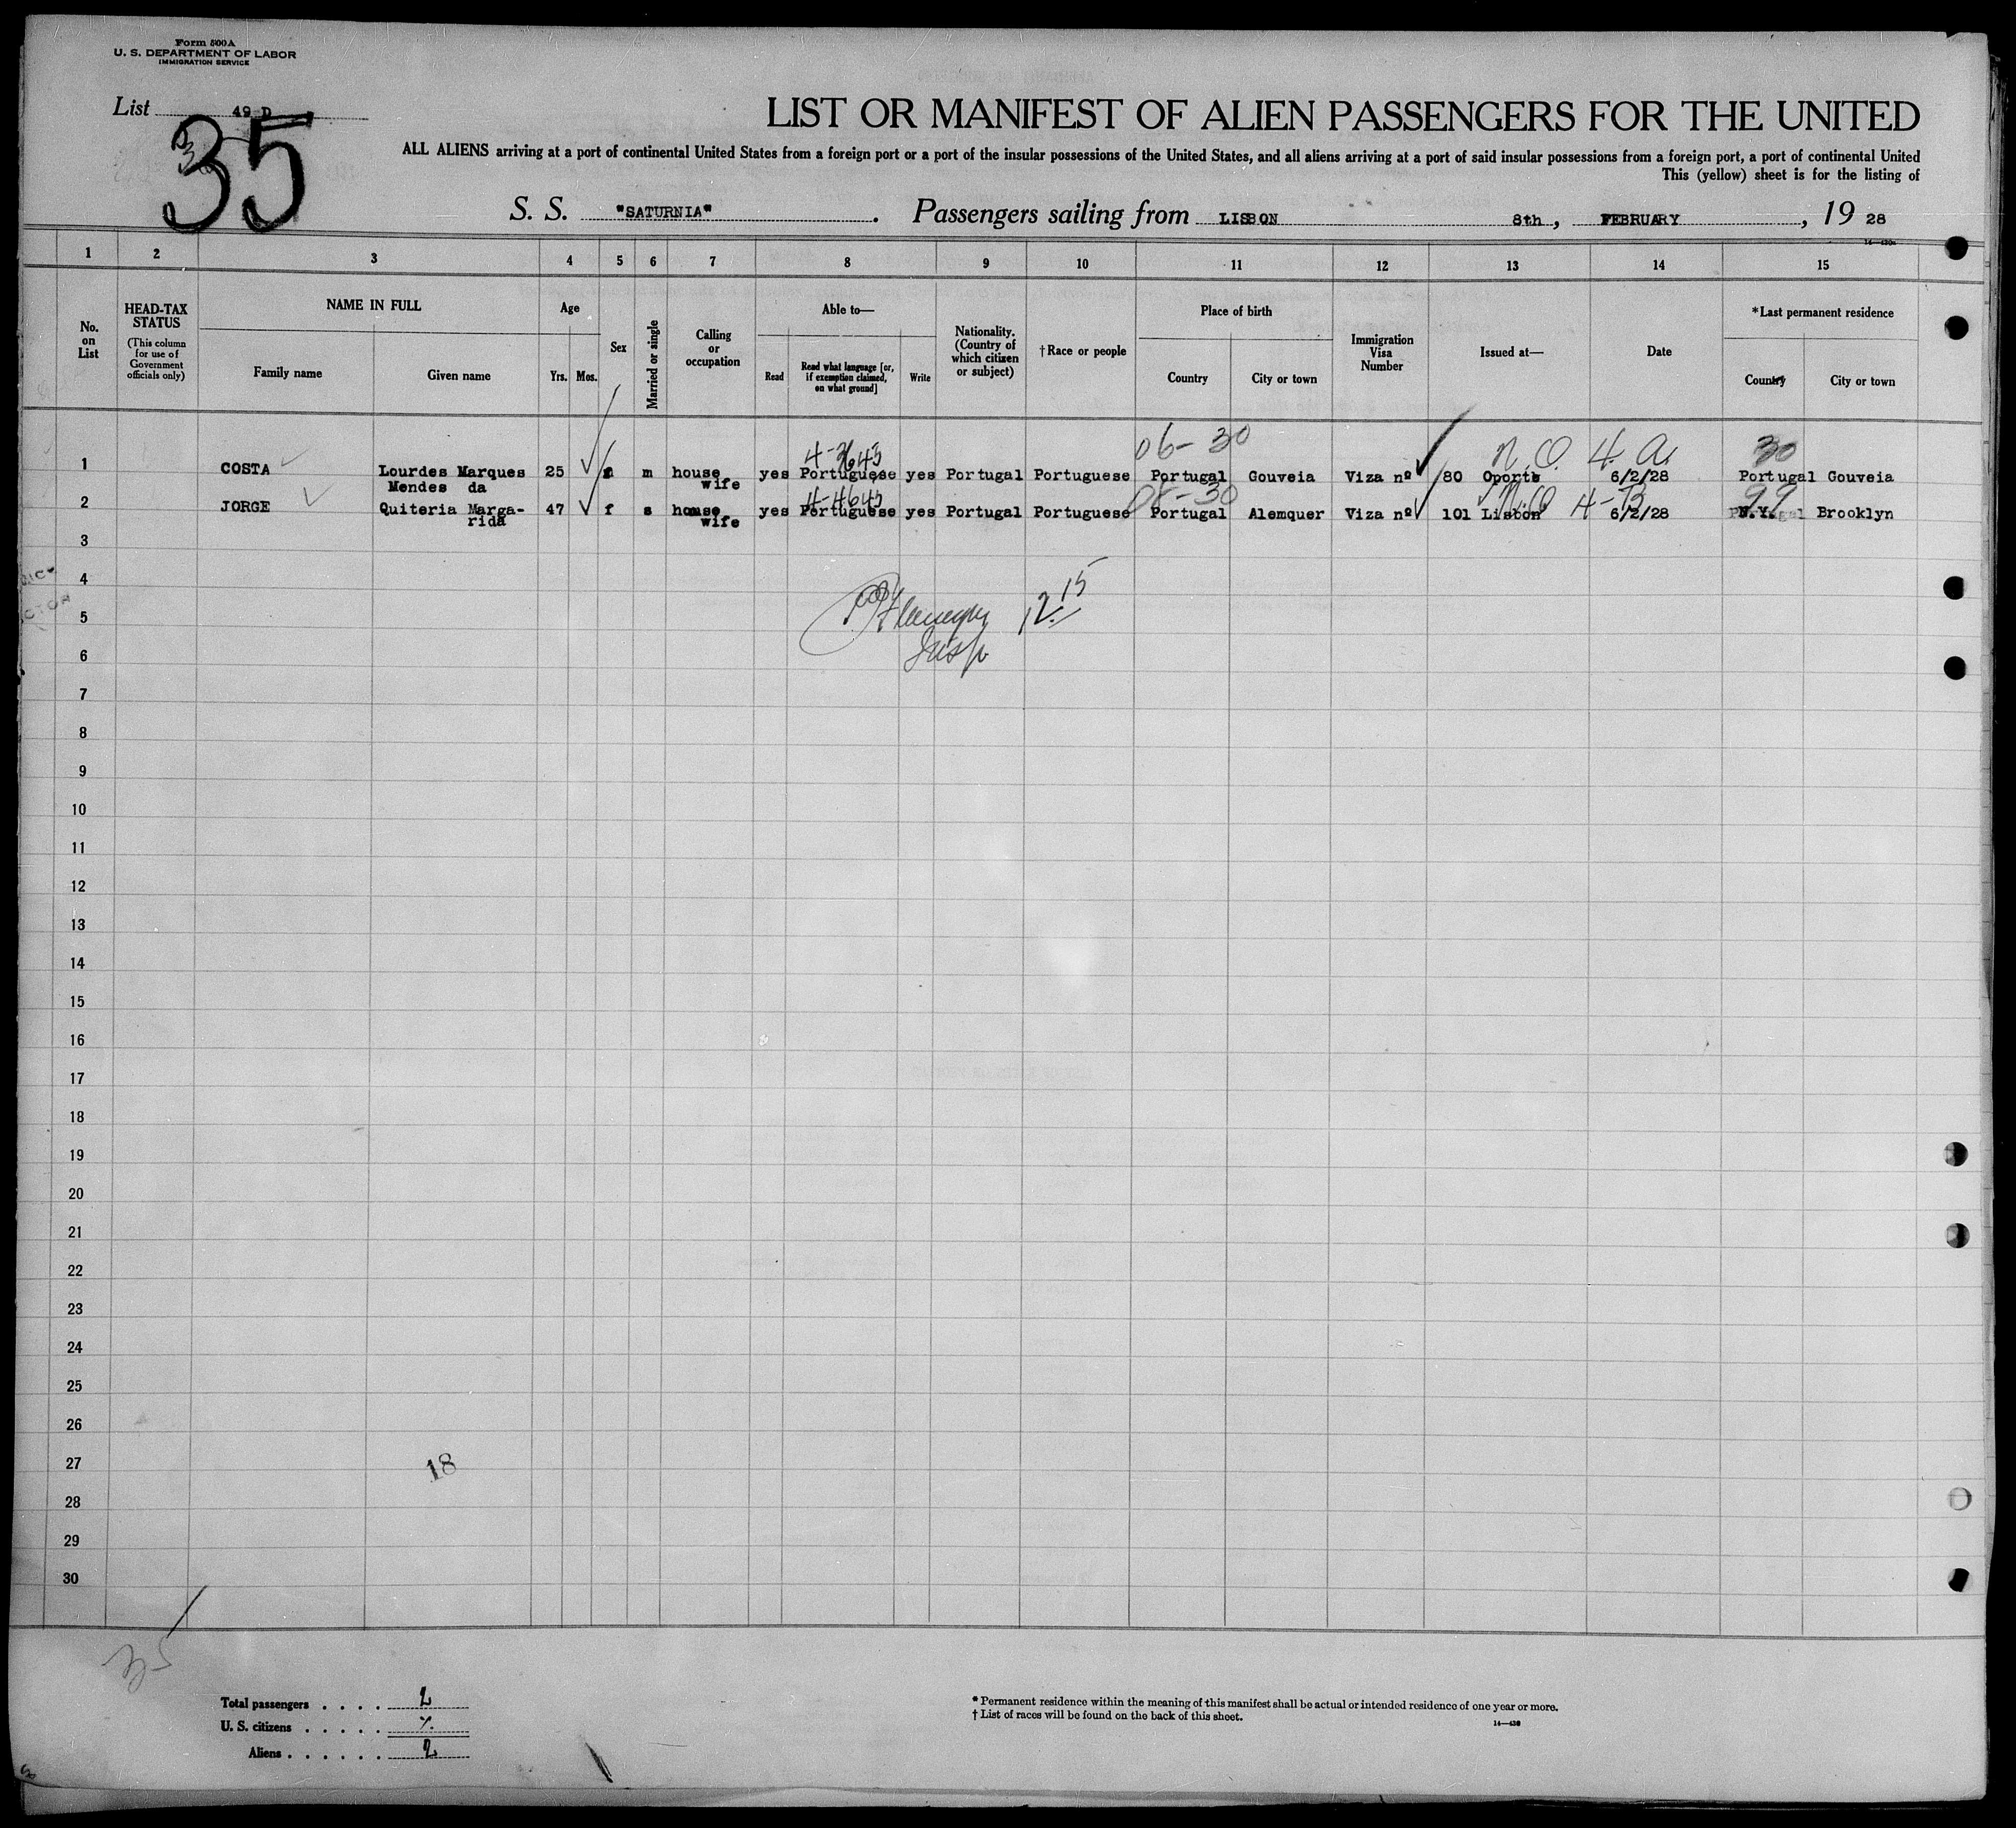 Form 500A
U. S. DEPARTMENT OF LABOR
IMMIGRATION SERVICE
List 49 D
35
LIST OR MANIFEST OF ALIEN PASSENGERS FOR THE UNITED
ALL ALIENS arriving at a port of continental United States from a foreign port or a port of the insular possessions of the United States, and all aliens arriving at a port of said insular possessions from a foreign port, a port of continental United
This (yellow) sheet is for the listing of
S. S. "SATURNIA" . Passengers sailing from LISBON 8th, FEBRUARY , 19 28
1 2 3 4 5 6 7 8 9 10 11 12 13 14 15
No. on List
HEAD-TAX STATUS
(This column for use of Government officials only)
NAME IN FULL
Family name Given name
Age
Yrs. Mos.
Sex
Married or single
Calling or occupation
Able to—
Read
Read what language [or, if exemption claimed, on what ground]
Write
Nationality. (Country of which citizen or subject)
†Race or people
Place of birth
Country City or town
Immigration Visa Number
Issued at—
Date
*Last permanent residence
Country City or town
06-30 N.O. 4. A 30
1 COSTA Lourdes Marques 25 m house yes Portuguese yes Portugal Portuguese Portugal Gouveia Viza nº 80 Oporto 6/2/28 Portugal Gouveia
Mendes da wife
99
2 JORGE Quiteria Marga- 47 f s house yes Portuguese yes Portugal Portuguese Portugal Alemquer Viza nº 101 Lisbon 6/2/28 N.Y. Brooklyn
rida wife
3
4
5 12.15
Insp
6
7
8
9
10
11
12
13
14
15
16
17
18
19
20
21
22
23
24
25
26
27 18
28
29
30
35
Total passengers . . . . 2
U. S. citizens . . . . .
Aliens . . . . . . 2
* Permanent residence within the meaning of this manifest shall be actual or intended residence of one year or more.
† List of races will be found on the back of this sheet.
14—430